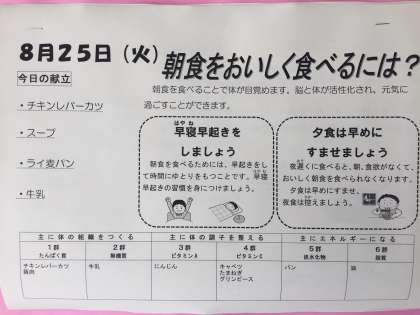 8月25日（火）
朝食をおいしく食べるには？
今日の献立
朝食を食べることで体が目覚めます。脳と体が活性化され、元気に
過ごすことができます。
・チキンレバーカツ
・スープ
・ライ麦パン
・牛乳
はや ね
早寝早起きを
しましょう
朝食を食べるためには、早起きをし
て時間にゆとりをもつことです。早寝
早起きの習慣を身につけましょう。
夕食は早めに
すませましょう
夜遅くに食べると、朝、食欲がなくて、
おいしく朝食を食べられなくなります。
夕食は早めにすませ、
夜食は控えましょう。
主に体の組織をつくる 主に体の調子を整える 主にエネルギーになる
1群 2群 3群 4群 5群 6群
たんぱく質 無機質 ビタミンA ビタミンC 炭水化物 脂質
チキンレバーカツ 牛乳 にんじん キャベツ パン 油
鶏肉 たまねぎ
グリンピース